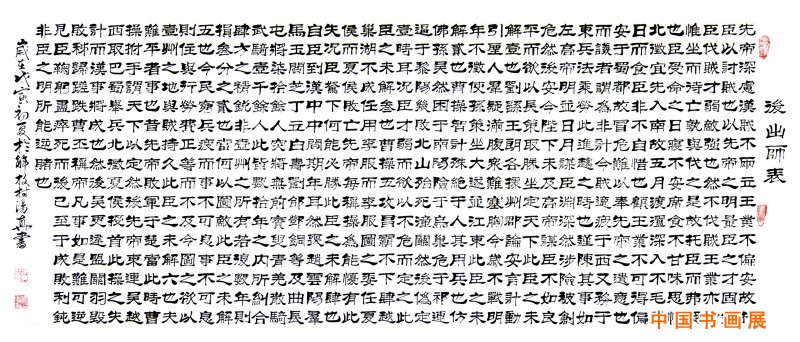 後出師表
先帝深慮漢賊不兩立王業不偏安故託
臣以討賊也以先帝之明量臣之才固知
臣伐賊才弱敵強也然不伐賊王業亦亡
惟坐而待亡孰與伐之是故託臣而弗疑
也臣受命之日寢不安席食不甘味思惟
北征宜先入南故五月渡瀘深入不毛并
日而食臣非不自惜也顧王業不可得偏
安于蜀都故冒危難以奉先帝之遺意也
而議者謂為非計今賊適疲于西又務于
東兵法乘勞此進趨之時也謹陳其事如
左高帝明並日月謀臣淵深然涉險被創
危然後安今陛下未及高帝謀臣不如良
平而欲以長計取勝坐定天下此臣之未
解壹也劉繇王朗各據州郡論安言計動
引聖人群疑滿腹眾難塞胸今歲不戰明
年不征使孫策坐大遂并江東此臣之未
解貳也曹操智計殊絕于人其用兵也仿
佛孫吳然困于南陽險于烏巢危于祁連
逼于黎陽幾敗北山殆死潼關然後偽定
壹時耳況臣才弱而欲以不危而定之此
臣之未解叁也曹操五攻昌霸不下四越
巢湖不成任用李服而李服圖之委任夏
侯而夏侯敗亡先帝每稱操為能猶有此
失況臣駑下何能必勝此臣之未解肆也
自臣到漢中中間期年耳然喪趙雲陽羣
馬玉閻芝丁立白壽劉郃鄧銅等及曲長
屯將柒拾餘人突將無前賨叟青羌散騎
武騎壹仟餘人此皆數拾年之內所糾合
肆方之精銳非壹州之所有若復數年則
損叁分之貳也當何以圖敵此臣之未解
五也今民窮兵疲而事不可息事不可息
則住與行勞費正等而不及今圖之欲以
壹州之地與賊持久此臣之未解六也夫
難平者事也昔先帝敗軍于楚當此時曹
操拊手謂天下以定然後先帝東連吳越
西取巴蜀舉兵北征夏侯授首此操之失
計而漢事將成也然後吳更違盟關羽毀
敗秭歸蹉跌曹丕稱帝凡事如是難可逆
見臣鞠躬盡瘁死而後已至于成敗利鈍
非臣之明所能逆睹也
歲在戊寅初夏於解放 湯真書
中国书画展